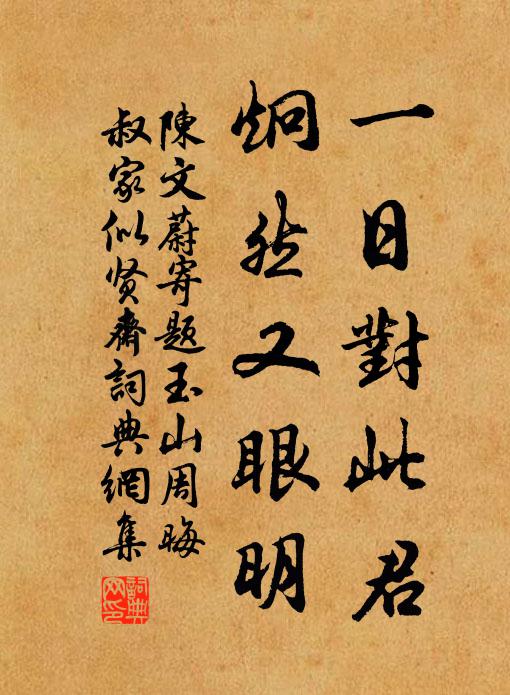 一日對此君
炯然又眼明
陳文蔚寄題玉山周晦
叔家似贤齋詞典網集
詞典网印